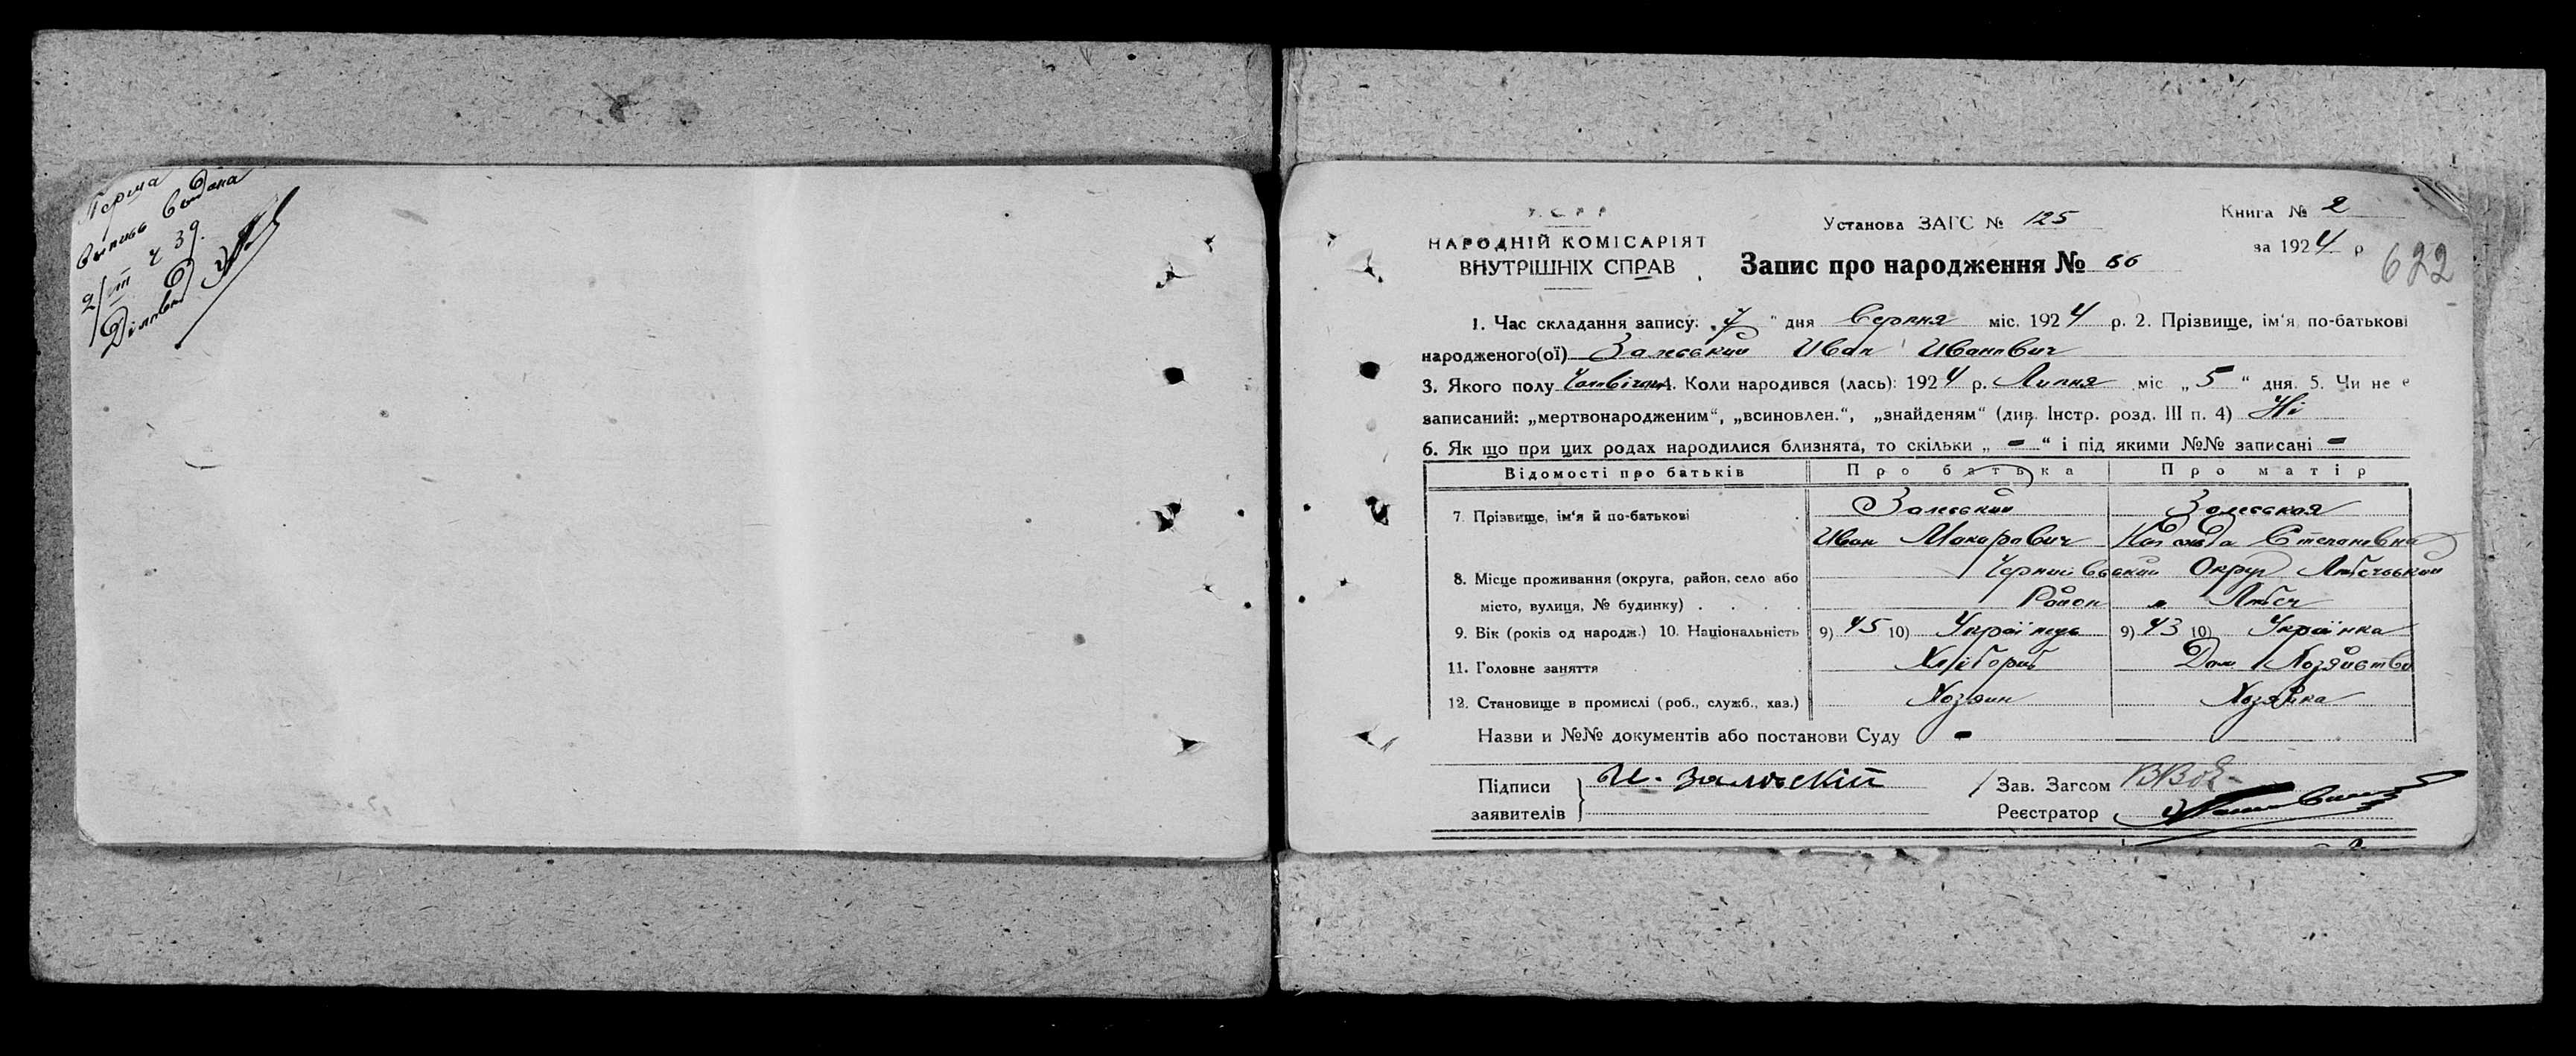 Перша
випись видана
2/III 39.
У.С.Р.Р.
НАРОДНІЙ КОМІСАРІЯТ
ВНУТРІШНІХ СПРАВ
Установа ЗАГС № 125
Книга № 2
за 1924 р
Запис про народження № 66
622
1. Час складання запису: „7“ дня Серпня міс. 1924 р. 2. Прізвище, ім'я по-батькові
народженого(ої) Залеський Иван Иванович
3. Якого полу Чоловічого 4. Коли народився (лась): 1924 р. Липня міс „5“ дня. 5. Чи не є
записаний: „мертвонародженим“, „всиновлен.“, „знайденям“ (див. Інстр. розд. III п. 4) Ні
6. Як що при цих родах народилися близнята, то скільки „-“ і під якими №№ записані -
Відомості про батьків Про батька Про матір
7 Прізвище, ім'я й по-батькові Залеський Залеская
Иван Макарович Степановна
8. Місце проживання (округа, район, село або Округ Любечський
місто, вулиця, № будинку) . . . . Район м Любеч
9. Вік (років од народж.) 10. Національність 9) 45 10) Українець 9) 43 10) Українка
11. Головне заняття Хлібороб Дом Хозяйство
12. Становище в промислі (роб., служб., хаз.) Хозяин Хозяйка
Назви и №№ документів або постанови Суду -
Підписи И. Залѣский Зав. Загсом
заявителів Реєстратор